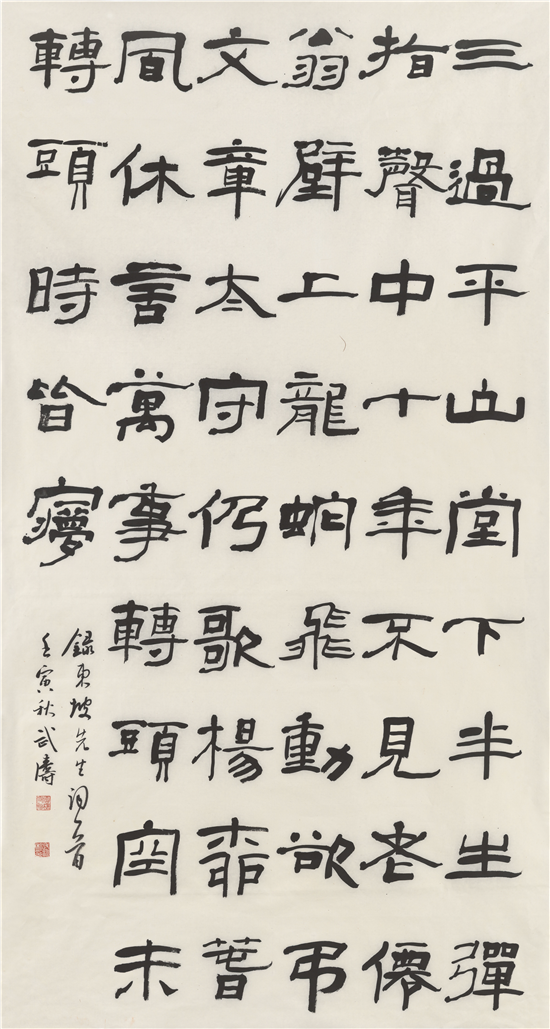 三過平山堂下半生彈
指聲中十年不見老僊
翁壁上龍蛇飛動欲弔
文章太守仍歌楊柳春
風休言萬事轉頭空未
轉頭時皆夢
錄東坡先生詞一首
壬寅秋武濤